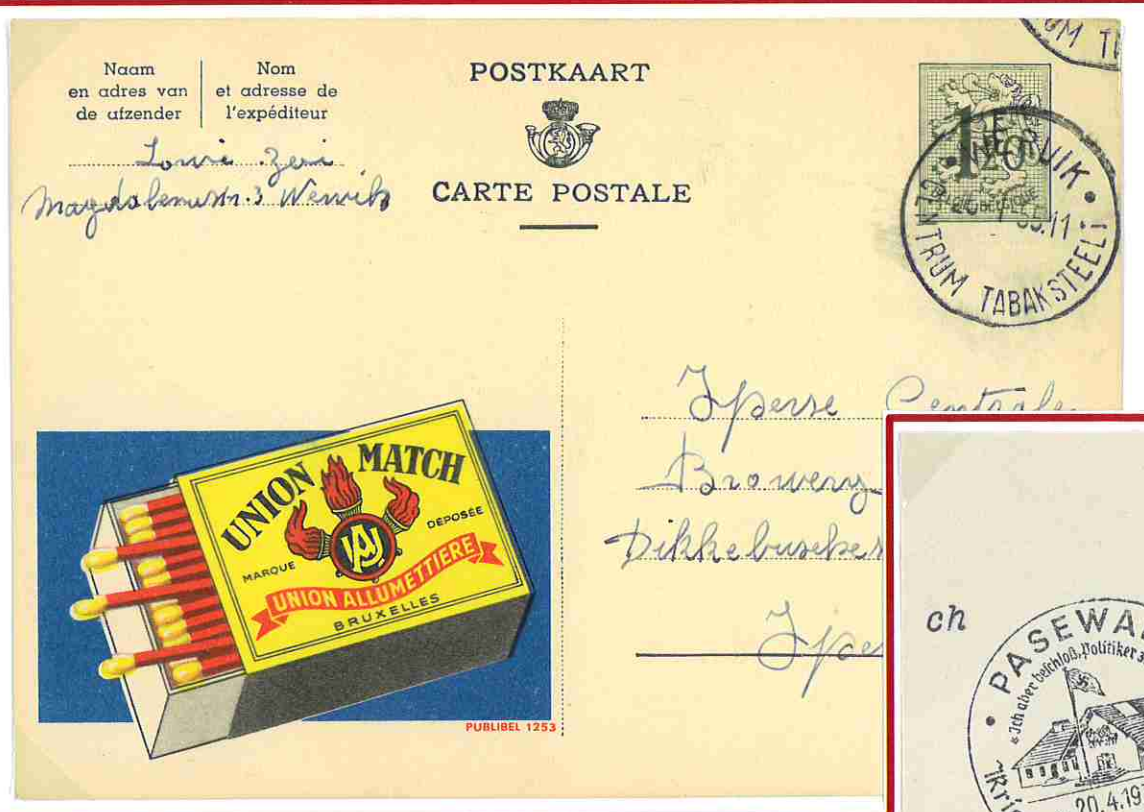 Naam
en adres van
de afzender
Nom
et adresse de
l'expéditeur
POSTKAART
CARTE POSTALE
Magdalenastr. 3 Wervik
1 20
BELGIE BELGIQUE
WERVIK
CENTRUM TABAKSTEELT
OM T
Centrale
Brouwery
UNION MATCH
MARQUE
DEPOSÉE
UA
UNION ALLUMETTIERE
BRUXELLES
PUBLIBEL 1253
ch
PASEWA
"Ich aber beschloß, Politiker
20.4.19